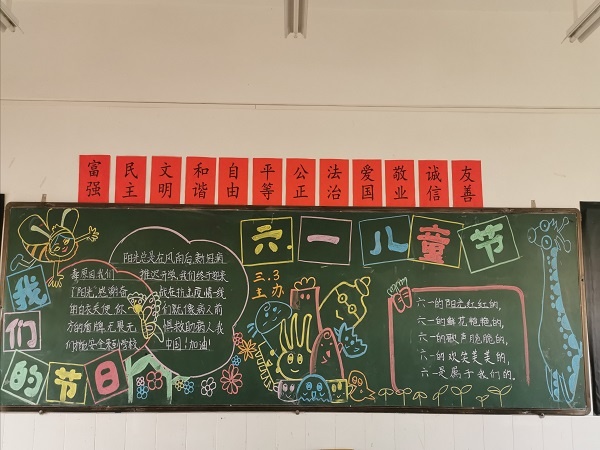 富强 民主 文明 和谐 自由 平等 公正 法治 爱国 敬业 诚信 友善
六一儿童节
我们的节日
三.3
主办
阳光总是在风雨后,新冠病
毒原因我们 推迟开学,我们终于迎来
了阳光,感谢奋 战在抗击疫情一线
的白衣天使,你 们就像病人前
方的盾牌,无畏无 惧救助病人,我
们才能安全来到学校 中国!加油!
六一的阳光红红的,
六一的鲜花艳艳的,
六一的歌声脆脆的,
六一的欢笑美美的,
六一是属于我们的。